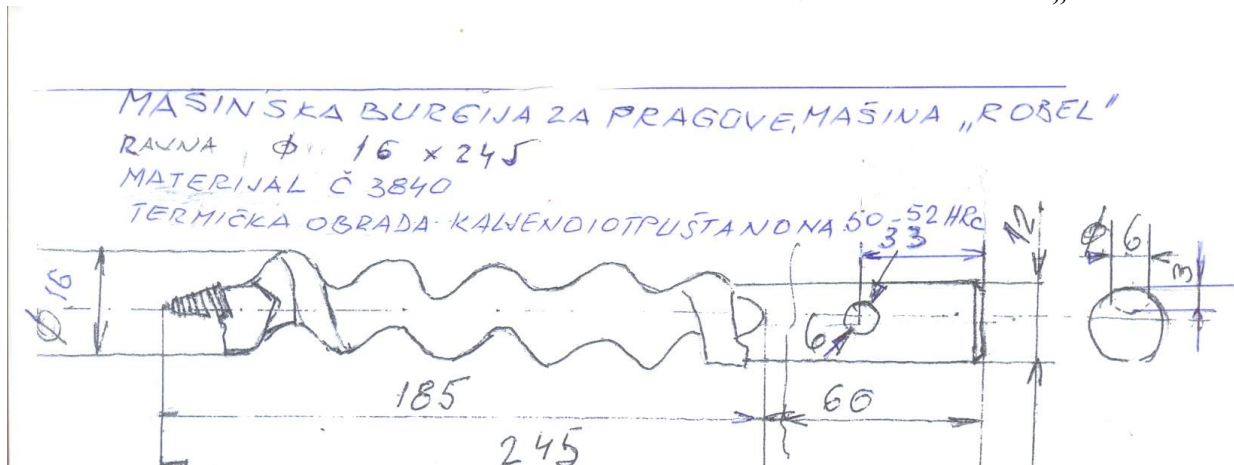 „
MAŠINSKA BURGIJA ZA PRAGOVE, MAŠINA „ROBEL"
RAVNA ϕ 16 x 245
MATERIJAL Č 3840
TERMIČKA OBRADA-KALJENO I OTPUŠTANO NA 50-52 HRc
33
12
ϕ 6
3
ϕ 16
6
185
60
245